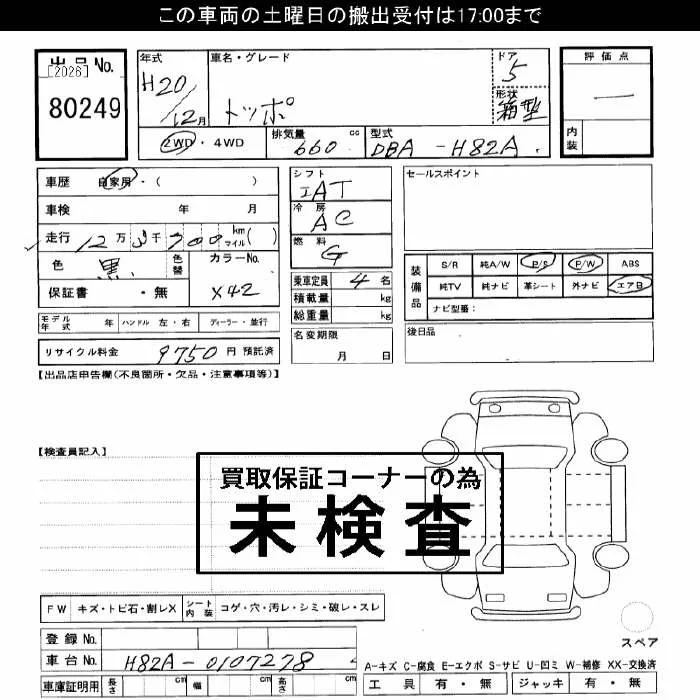 この車両の土曜日の搬出受付は17:00まで
出品No.
[2026]
80249
年式
H20/12月
車名・グレード
トッポ
ドア
5
形状
箱型
2WD・4WD
排気量 660 cc
型式 DBA-H82A
評価点
―
内装
車歴 自家用・( )
車検 年 月
走行 12万3千700 km マイル( )
色 黒 色替
カラーNo. X42
保証書 ・無
モデル年式 年 ハンドル 左・右 ディーラー・並行
リサイクル料金 9750 円 預託済
シフト
IAT
冷房
AC
燃料
G
乗車定員 4 名
積載量 kg
総重量 kg
名変期限
月 日
セールスポイント
装備品
S/R 純A/W P/S P/W ABS
純TV 純ナビ 革シート 外ナビ エアB
ナビ型番:
後日品
【出品店申告欄(不良箇所・欠品・注意事項等)】
【検査員記入】
買取保証コーナーの為
未検査
FW キズ・トビ石・割レX シート内装 コゲ・穴・汚レ・シミ・破レ・スレ
登録No.
車台No. H82A-0107278
車庫証明用 長さ cm 幅 cm 高さ cm
スペア
A-キズ C-腐食 E-エクボ S-サビ U-凹ミ W-補修 XX-交換済
工具 有・無 ジャッキ 有・無